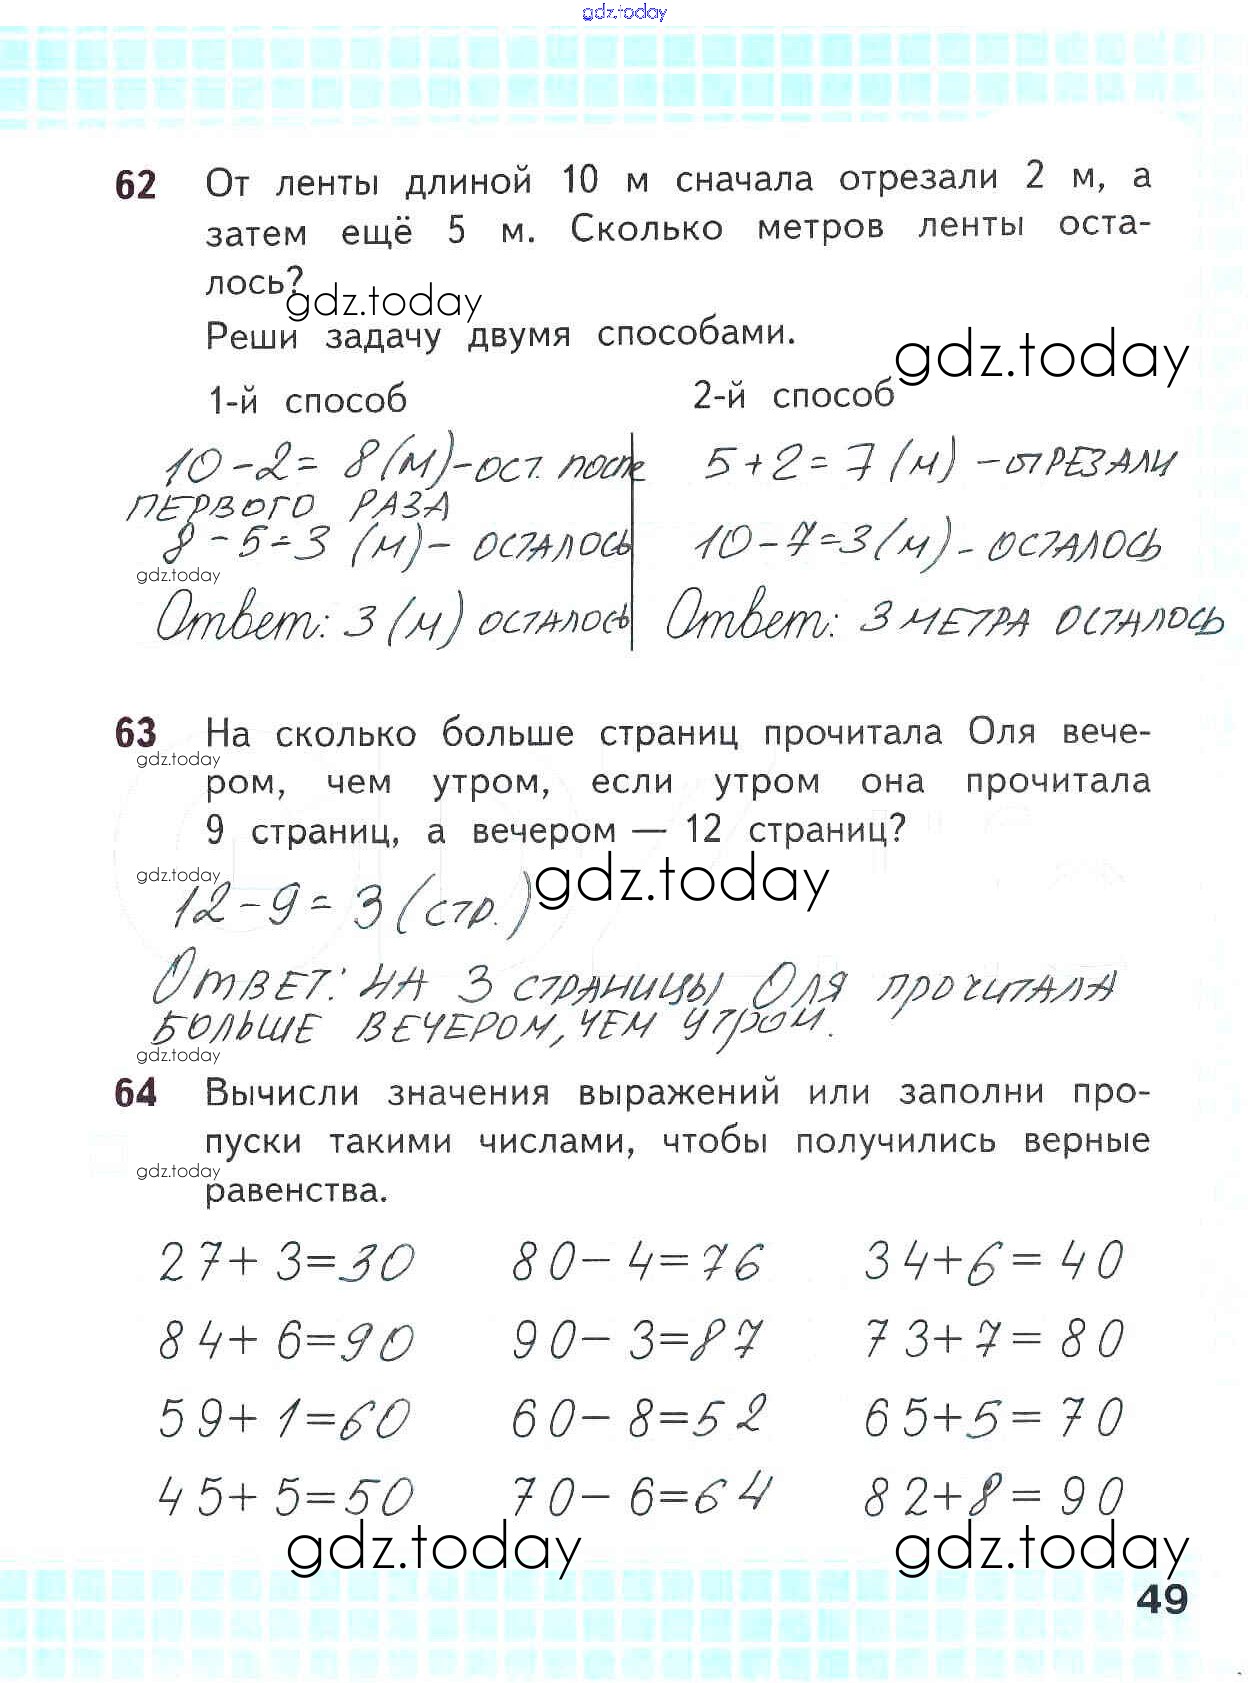 gdz.today
62 От ленты длиной 10 м сначала отрезали 2 м, а
затем ещё 5 м. Сколько метров ленты оста-
лось?
gdz.today
Реши задачу двумя способами.
gdz.today
1-й способ 2-й способ
10-2= 8(м)-ост. после 5+2=7(м) -отрезали
ПЕРВОГО РАЗА
8-5=3 (м)- осталось 10-7=3(м)- осталось
gdz.today
Ответ: 3(м) осталось Ответ: 3 метра осталось
63 На сколько больше страниц прочитала Оля вече-
gdz.today
ром, чем утром, если утром она прочитала
9 страниц, а вечером — 12 страниц?
gdz.today
gdz.today
12-9=3(стр.)
Ответ: на 3 страницы Оля прочитала
больше вечером, чем утром.
gdz.today
64 Вычисли значения выражений или заполни про-
пуски такими числами, чтобы получились верные
gdz.today
равенства.
27+3=30 80-4=76 34+6=40
84+6=90 90-3=87 73+7=80
59+1=60 60-8=52 65+5=70
45+5=50 70-6=64 82+8=90
gdz.today gdz.today
49